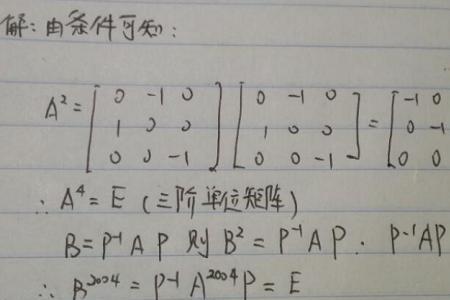 解:由条件可知:
A² = [0 -1 0; 1 0 0; 0 0 -1] [0 -1 0; 1 0 0; 0 0 -1] = [-1 0; 0 -1; 0 0
∴ A⁴ = E (三阶单位矩阵)
B = P⁻¹ A P 则 B² = P⁻¹ A P · P⁻¹ A P
∴ B²⁰⁰⁴ = P⁻¹ A²⁰⁰⁴ P = E